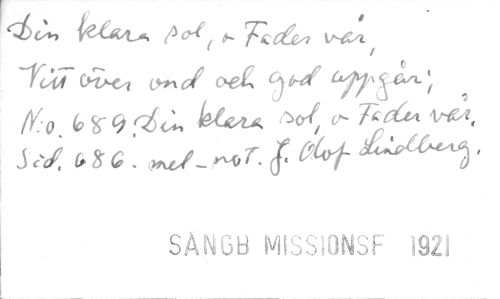 Din klara sol, o Fader vår,
Vitt över ond och god uppgår;
N:o. 689. Din klara sol, o Fader vår.
Sid. 686. mel-not. J. Olof Lindberg.
SÅNGB MISSIONSF 1921